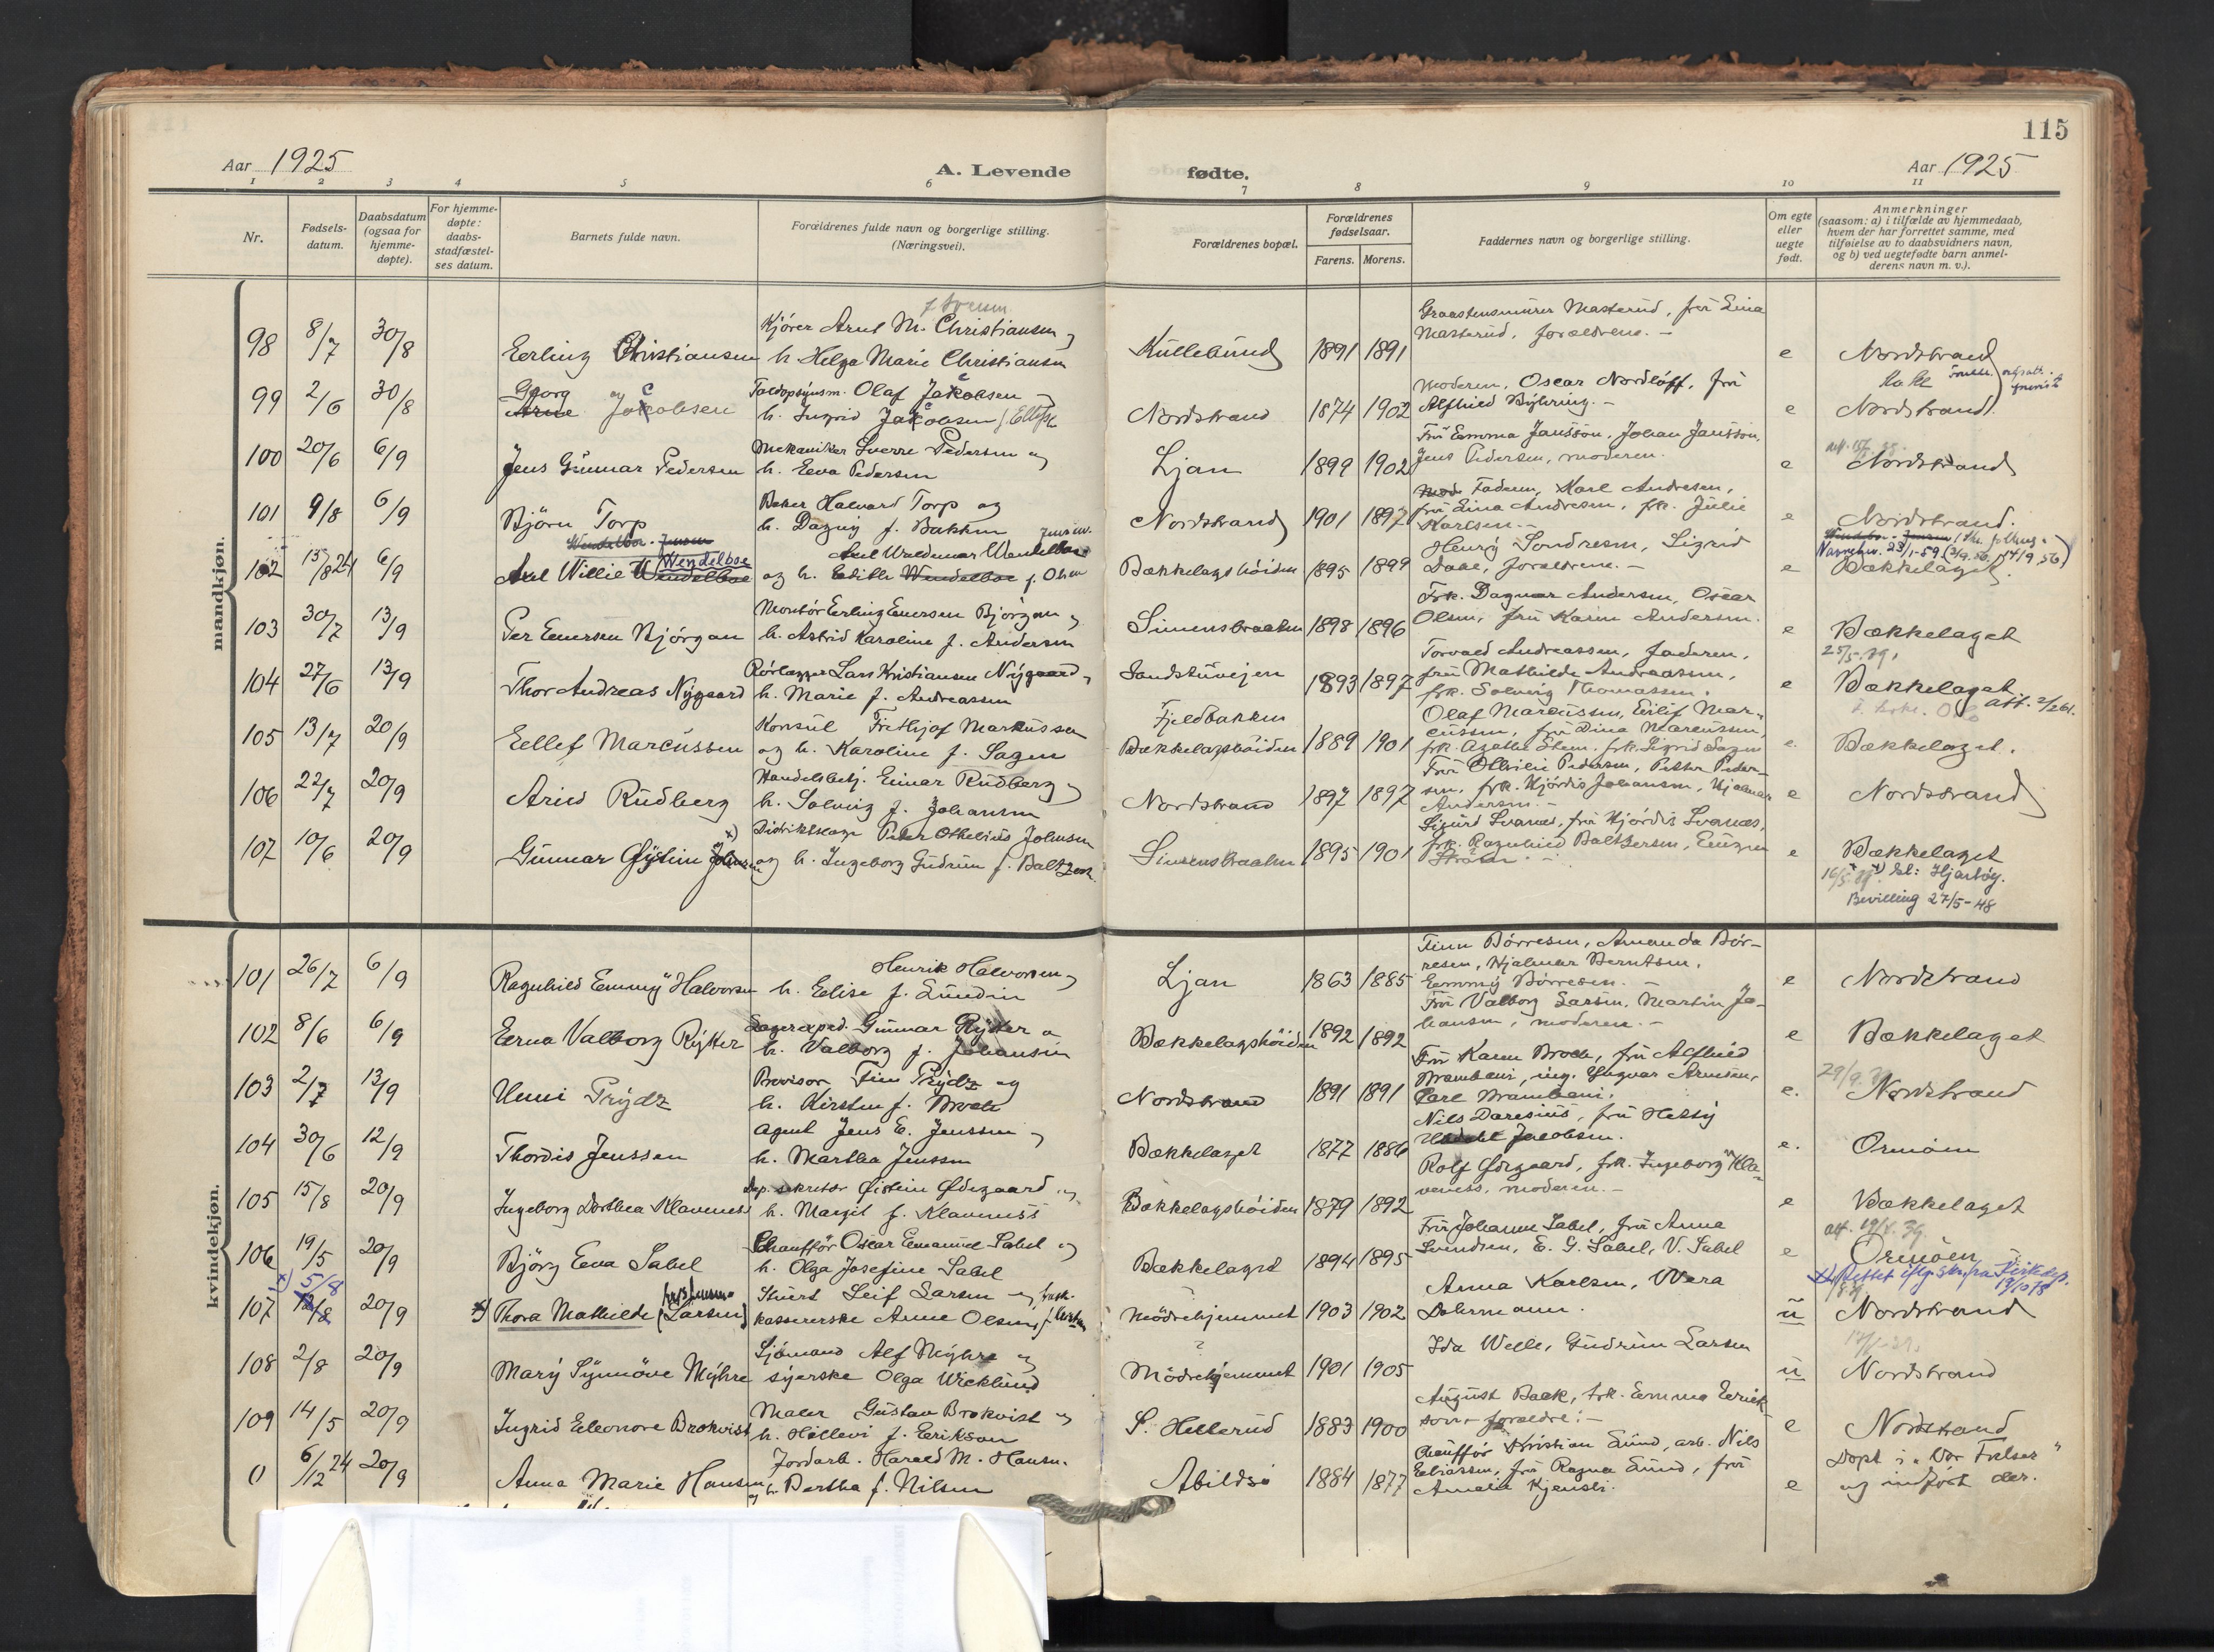 115
Aar 1925
A. Levende
fødte.
Aar 1925
1 2 3 4 5 6 7 8 9 10 11
Nr.
Fødsels-
datum.
Daabsdatum
(ogsaa for
hjemme-
døpte).
For hjemme-
døpte:
daabs-
stadfæstel-
ses datum.
Barnets fulde navn.
Forældrenes fulde navn og borgerlige stilling.
(Næringsvei).
Forældrenes bopæl.
Forældrenes
fødselsaar.
Farens. Morens.
Faddernes navn og borgerlige stilling.
Om egte
eller
uegte
født.
Anmerkninger
(saasom: a) i tilfælde av hjemmedaab,
hvem der har forrettet samme, med
tilføielse av to daabsvidners navn,
og b) ved uegtefødte barn anmel-
derens navn m. v.).
mandkjøn.
98 8/7 30/8 Erling Christiansen
Kjører Arnt M. Christiansen og
h. Helga Marie Christiansen
Kullebund 1891 1891
Graastensmurer Masterud, fru Lina
Masterud, forældrene. -
e Nordstrand
99 2/6 30/8 Georg Jakobsen
Toldopsynsm. Olaf Jakobsen
h. Ingrid Jakobsen
Nordstrand 1874 1902
Moderen, Oscar Nordløff, fru
Alfhild Byhring. -
e Nordstrand.
100 20/6 6/9 Jens Gunnar Pedersen
Mekaniker Sverre Pedersen og
h. Eeva Pedersen
Ljan 1899 1902
Fru Emma Jansson, Johan Jansson,
Jens Pedersen, moderen.
e Nordstrand
101 9/8 6/9 Bjørn Torp
Baker Halvard Torp og
h. Dagny f. Bakken
Nordstrand 1901 1897
Faderen, Karl Andresen,
fru Lina Andresen, frk. Julie
Karlsen. -
e Nordstrand.
102 15/8 24 6/9 Axel Willie Wendelboe
Wendelboe
Axel Waldemar Wendelboe
og h. Edith Wendelboe f. Olsen
Bækkelagshöiden 1895 1899
Henry Sondresen, Sigrid
Dahl, forældrene. -
Navnebev. 23/1-59
e Bækkelaget.
103 30/7 13/9 Per Emersen Bjørgan
Montør Erling Emersen Bjørgan og
h. Astrid Karoline f. Andersen
Simensbraaten 1898 1896
Frk. Dagmar Andersen, Oscar
Olsen, fru Karin Andersen.
e Bækkelaget
104 27/6 13/9 Thor Andreas Nygaard
Rørlægger Lars Kristiansen Nygaard
h. Marie f. Andreassen
Sandstuvejen 1893 1897
Torvald Andreassen, faderen,
fru Mathilde Andreassen,
frk. Solveig Thomassen.
25/5.39.
e Bækkelaget
105 13/7 20/9 Eellef Marcussen
Konsul Frithjof Markussen
og h. Karoline f. Sagen
Fjeldbakken
Bækkelagshöiden 1889 1901
Olaf Marcussen, Eilif Mar-
cussen, fru Dina Marcussen,
frk. Agathe Stem, frk. Sigrid Sagen
e. Bækkelaget.
106 22/7 20/9 Arild Rudberg
Handelsbetj. Einar Rudberg
h. Solveig f. Johansen
Nordstrand 1897 1897
Fru Othilie Pedersen, Petter Peder-
sen, frk. Hjørdis Johansen, Hjalmar
Andersen. -
e Nordstrand
107 10/6 20/9 Gunnar Øystein Johnsen
Peter Othelius Johnsen
og h. Ingeborg Gudrun f. Baltzersen
Simensbraaten 1895 1901
Sigurd Svanæs, fru Hjørdis Svanæs,
frk. Ragnhild Baltzersen, Eugen
Strøm. -
e Bækkelaget
Hjartøy.
Bevilling 27/5-48
kvindekjøn.
101 26/7 6/9 Ragnhild Emmy Halvorsen
Henrik Halvorsen
h. Elise f. Lundin
Ljan 1863 1885
Finn Børresen, Amanda Bør-
resen, Hjalmar Berntsen,
Emmy Børresen. -
e Nordstrand
102 8/6 6/9 Erna Valborg Rykker
Lagerexped. Gunnar Rykker
h. Valborg f. Johansen
Bækkelagshöiden 1892 1892
Fru Valborg Larsen, Martin Jo-
hansen, moderen. -
e Bækkelaget
103 2/7 13/9 Unni Prydz
Revisor Finn Prydz og
h. Kirsten f. Broch
Nordstrand 1891 1891
Fru Karen Broch, fru Alfhild
Brambani, ing. Yngvar Arnesen,
Carl Brambani.
e. Nordstrand
104 30/6 12/9 Thordis Jenssen
Agent Jens E. Jenssen
h. Martha Jenssen
Bækkelaget 1877 1886
Nils Daresius, fru Hetty
Jacobsen.
e. Ormøen
105 15/8 20/9 Ingeborg Dorthea Klaveness
Øistein Ødegaard
h. Margit f. Klaveness
Bækkelagshöiden 1879 1892
Rolf Ødegaard, frk. Ingeborg Kla-
veness, moderen. -
e Bækkelaget
106 19/5 20/9 Bjørg Eva Sabel
Chauffør Oscar Emanuel Sabel og
h. Olga Josefine Sabel
Bækkelaget 1894 1895
Fru Johanne Sabel, fru Anna
Svendsen, E. G. Sabel, V. Sabel
e Ormøen
107 5/8 20/9 Thora Mathilde (Larsen)
Leif Larsen
kassererske Anne Olsen
Mödrehjemmet 1903 1902
Anna Karlsen, Wera
Dohrmann.
19/10 78
u Nordstrand
108 2/8 20/9 Mary Synnöve Myhre
Sjømand Alf Myhre og
syerske Olga Wicklund
Mödrehjemmet 1901 1905
Ida Welle, Gudrun Larsen
u Nordstrand
109 14/5 20/9 Ingrid Eleonore Brokvist
Maler Gustav Brokvist
h. Hellevi f. Erikson
S. Hellerud 1883 1900
August Back, frk. Emma Erick-
son, forældre. -
e Nordstrand
0 6/12 24 20/9 Anna Marie Hansen
Jordarb. Harald M. Hansen
og h. Bertha f. Nilsen
Abildsö 1884 1877
Chauffør Kristian Lund, arb. Nils
Eliassen, fru Ragna Lund, fru
Amalie Kjensli.
e Døpt i "Vor Frelser"
og indført der.